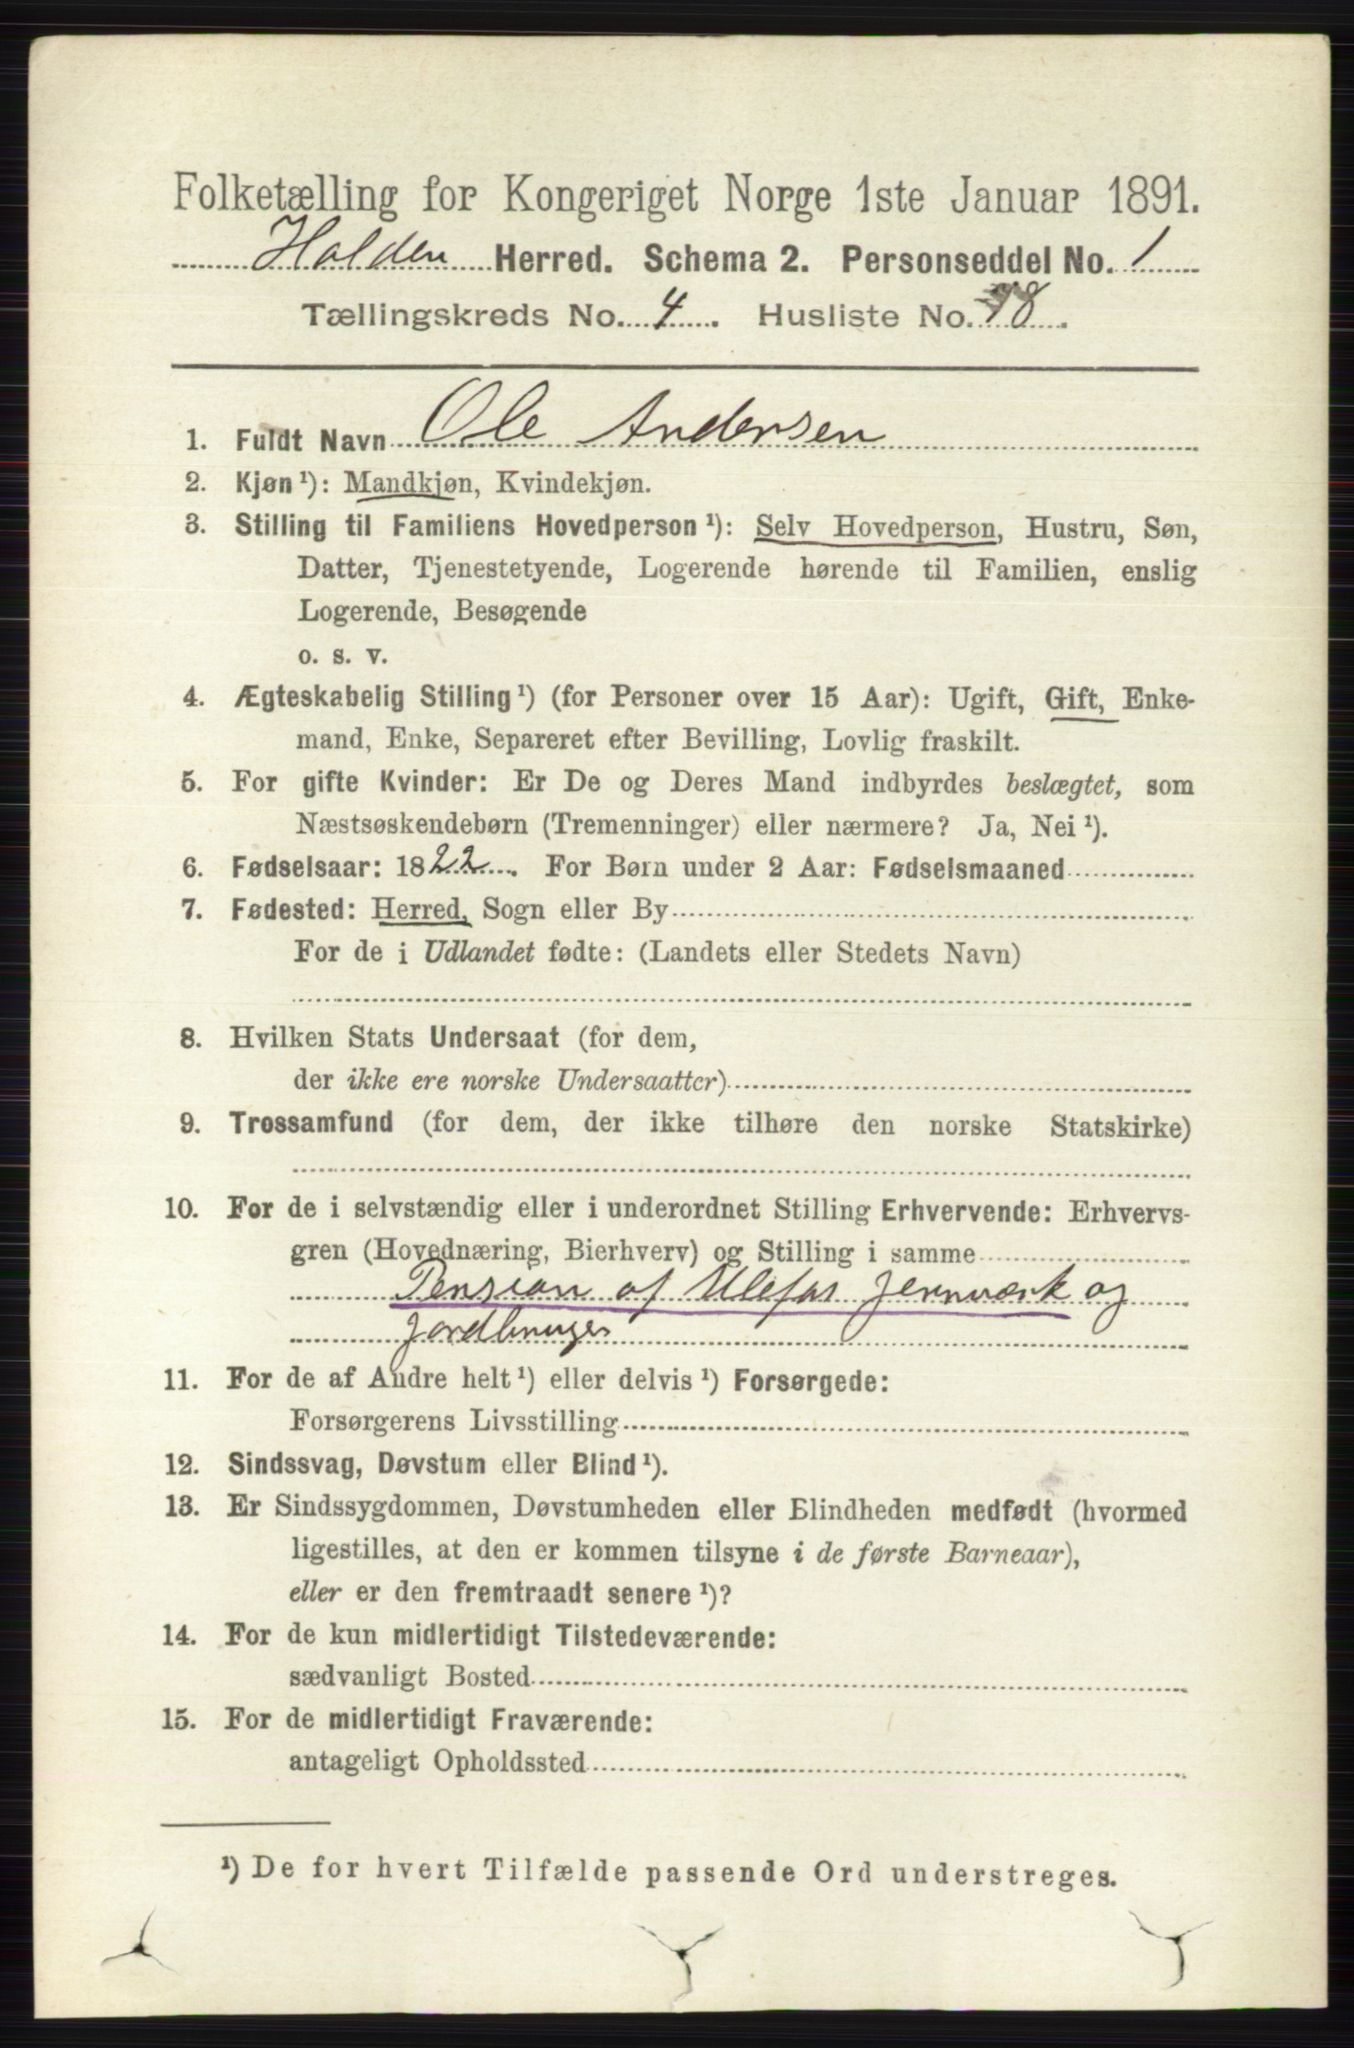 Folketælling for Kongeriget Norge 1ste Januar 1891.
Holden Herred. Schema 2. Personseddel No. 1
Tællingskreds No. 4. Husliste No. 78.
1. Fuldt Navn Ole Andersen
2. Kjøn ¹): Mandkjøn, Kvindekjøn.
3. Stilling til Familiens Hovedperson ¹): Selv Hovedperson, Hustru, Søn,
Datter, Tjenestetyende, Logerende hørende til Familien, enslig
Logerende, Besøgende
o. s. v.
4. Ægteskabelig Stilling ¹) (for Personer over 15 Aar): Ugift, Gift, Enke-
mand, Enke, Separeret efter Bevilling, Lovlig fraskilt.
5. For gifte Kvinder: Er De og Deres Mand indbyrdes beslægtet, som
Næstsøskendebørn (Tremenninger) eller nærmere? Ja, Nei ¹).
6. Fødselsaar: 1822. For Børn under 2 Aar: Fødselsmaaned
7. Fødested: Herred, Sogn eller By
For de i Udlandet fødte: (Landets eller Stedets Navn)
8. Hvilken Stats Undersaat (for dem,
der ikke ere norske Undersaatter)
9. Trossamfund (for dem, der ikke tilhøre den norske Statskirke)
10. For de i selvstændig eller i underordnet Stilling Erhvervende: Erhvervs-
gren (Hovednæring, Bierhverv) og Stilling i samme
Pension af Ulefos Jernværk og
Jordbruger
11. For de af Andre helt ¹) eller delvis ¹) Forsørgede:
Forsørgerens Livsstilling
12. Sindssvag, Døvstum eller Blind ¹).
13. Er Sindssygdommen, Døvstumheden eller Blindheden medfødt (hvormed
ligestilles, at den er kommen tilsyne i de første Barneaar),
eller er den fremtraadt senere ¹)?
14. For de kun midlertidigt Tilstedeværende:
sædvanligt Bosted
15. For de midlertidigt Fraværende:
antageligt Opholdssted
¹) De for hvert Tilfælde passende Ord understreges.